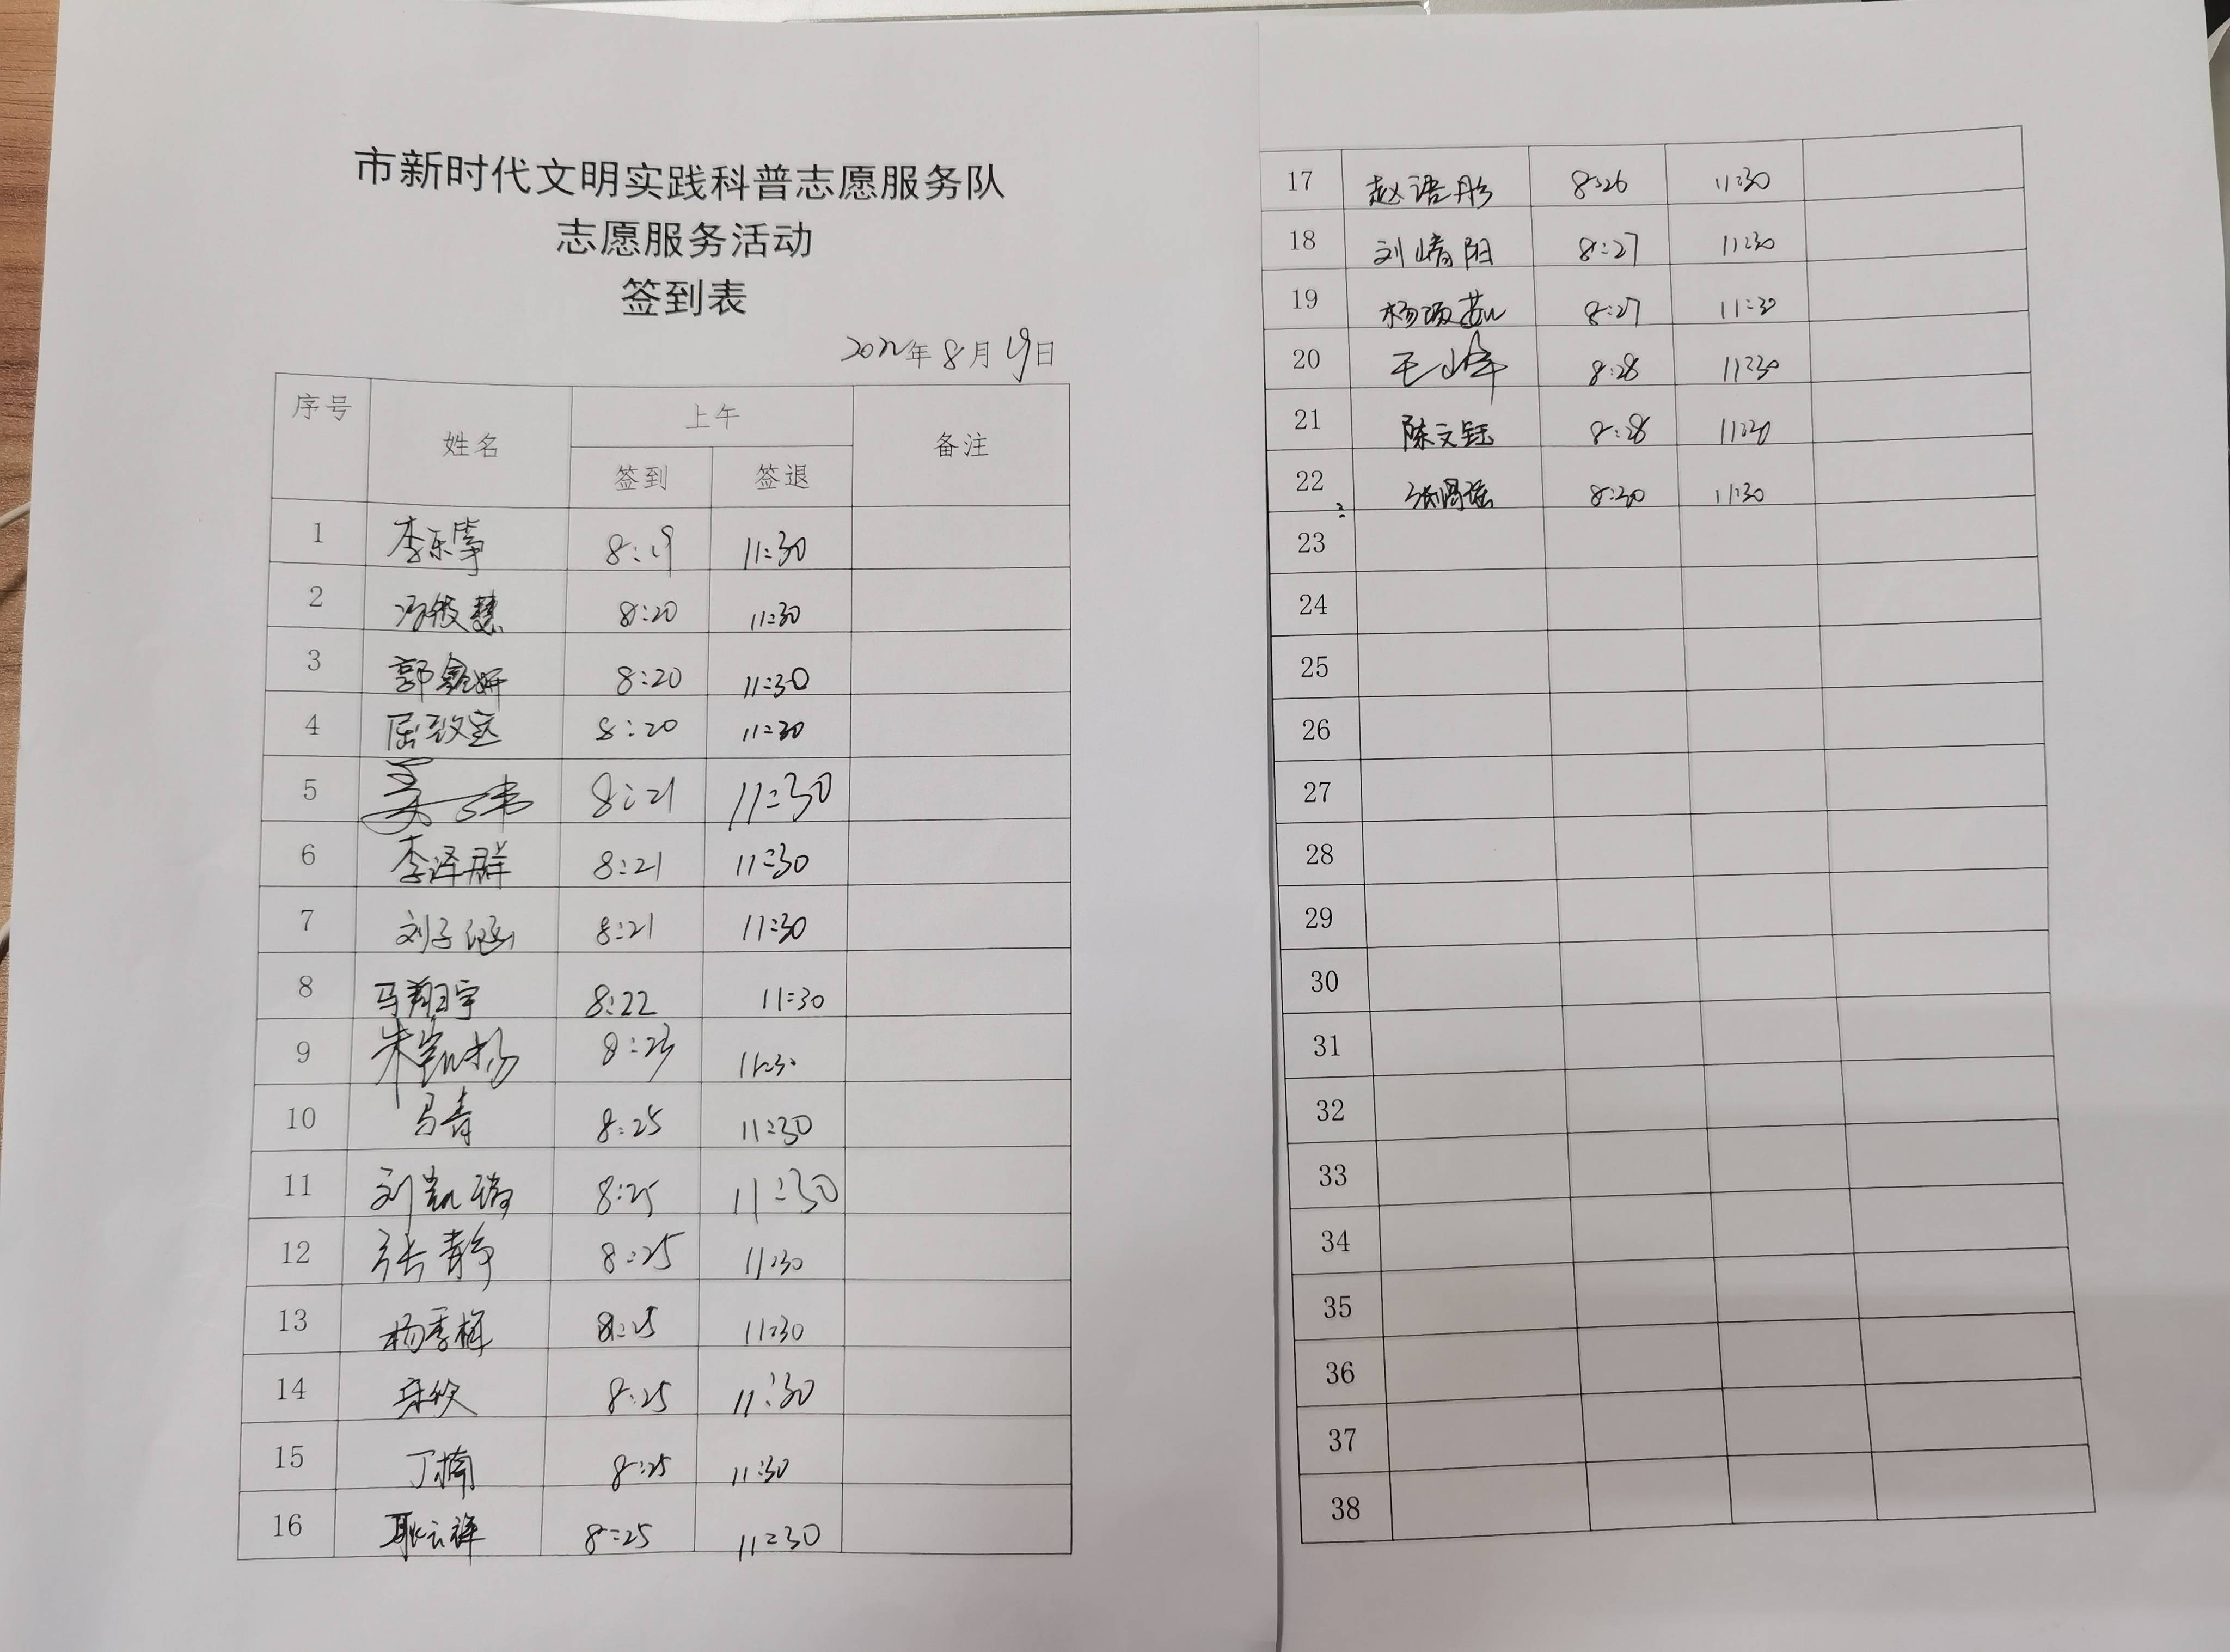 市新时代文明实践科普志愿服务队
志愿服务活动
签到表
2022年8月19日
序号 姓名 上午 备注
签到 签退
1 李乐 8:19 11:30
2 冯筱慧 8:20 11:30
3 郭鑫妍 8:20 11:30
4 屈致远 8:20 11:30
5 姜伟 8:21 11:30
6 李泽群 8:21 11:30
7 刘子涵 8:21 11:30
8 马翔宇 8:22 11:30
9 朱凯杨 8:23 11:30
10 马青 8:25 11:30
11 刘凯 8:25 11:30
12 张静 8:25 11:30
13 杨季梅 8:25 11:30
14 8:25 11:30
15 丁楠 8:25 11:30
16 耿云祥 8:25 11:30
17 赵语彤 8:26 11:30
18 刘晴阳 8:27 11:30
19 杨茹 8:27 11:30
20 王峰 8:28 11:30
21 陈文钰 8:28 11:30
22 张瑶 8:30 11:30
23
24
25
26
27
28
29
30
31
32
33
34
35
36
37
38